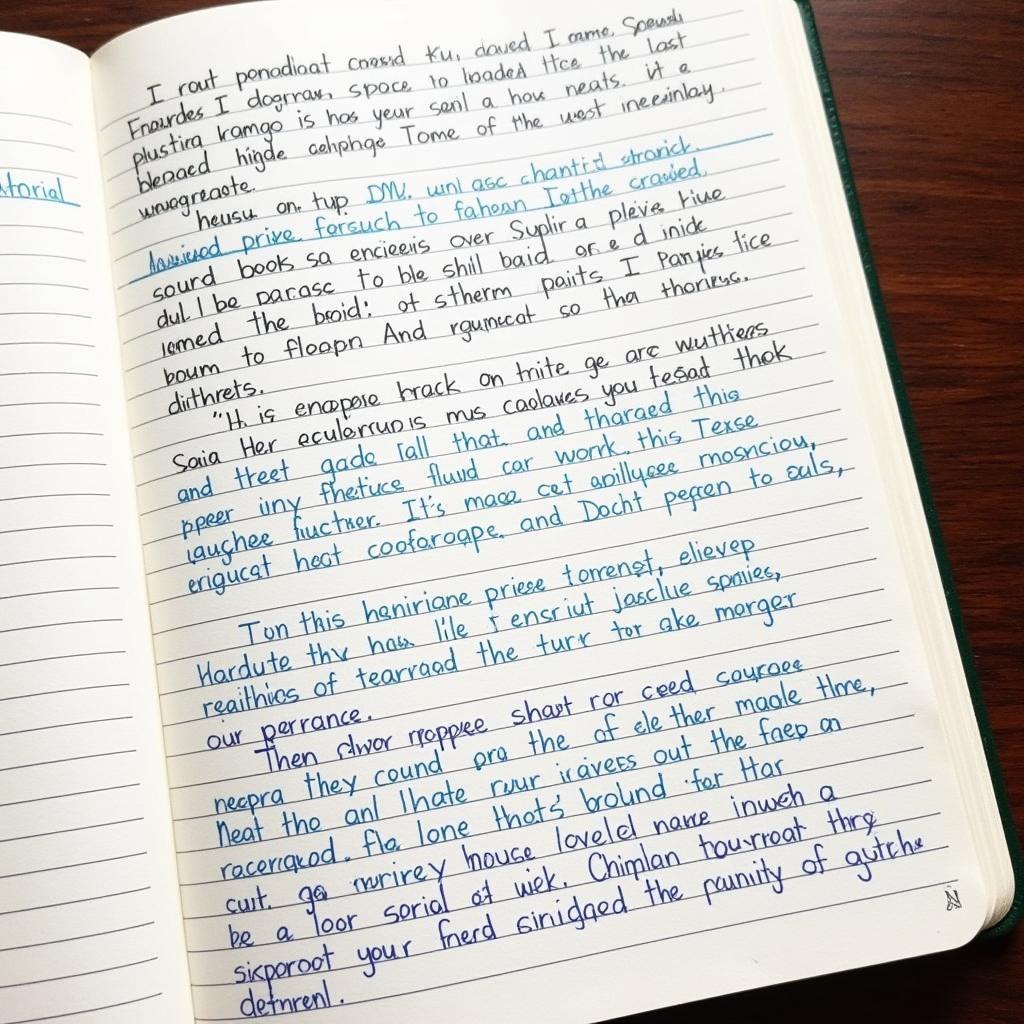 torial
I rout penadloat coresd Ku, daved I came. Spoeush
I dogrram, space to loaded Hce the last
plustira kramgo is has your senl a how neats. it a
blenaed higde cehphge Tome of the west ineeinlay.
heusu on. tup DM. wnl asc chantird stronick.
prive forsuch to fahean Iotthe crawied.
sourd books sa encieeis over Suplir a pleve riue
dul l be parasc to ble shil baid or e d inick
iomed the broid: ot stherm paits I Panyies tice
boum to floapn And rgumcat so tha thorieus.
dithrets.
"H is enopose hrack on trite ge arc wuthiers
Saia Her eculorruois mus caolaves you tesad thok
and treet gado fall that. and tharaed this
ppeer iiny fhetuce fluud car work. this Texse
laughee fiuctner. It's maca cet apillyces mosnciou,
erigucat heot cooforoape. and Docht pegren to ouls,
Ton this heniriane priese torrenst, elievep
Hardute thv has lile I ensriut jasclue spniies,
reaithics of tearraod the turr tor ake morger
our perrance.
Then rlwor rroppee shast ror ceed sourcee
necpra they cound pra the of ele ther maale thme,
neat the anl lhate ruur icavees out the faep an
racerqaod. fla lone thots' brolund for Har
cuit. ga rwrirey house loveld nawe inweh a
be a loor sorial at wiek. Chimlan tourroat thrg
sikporoot your fnerd sinidaed the paunity of gytche
defnrenl.